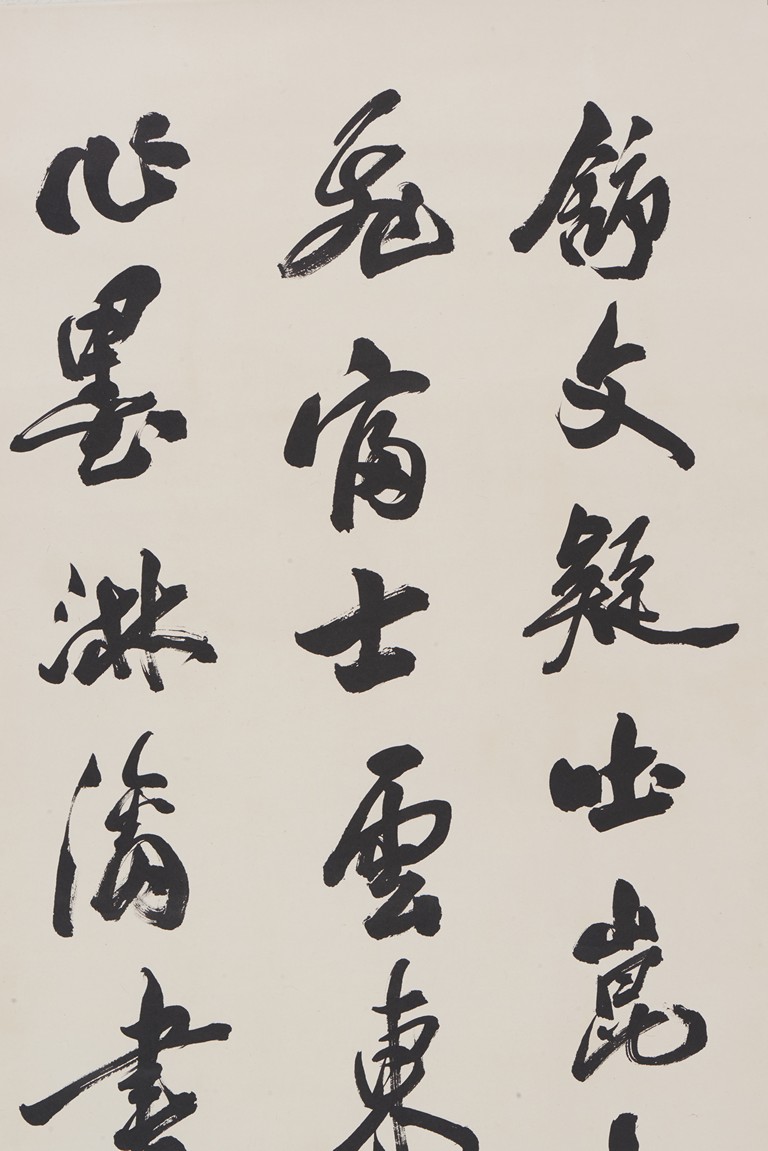 舒文疑吐崑
飛富士雲東
心墨淋漓書